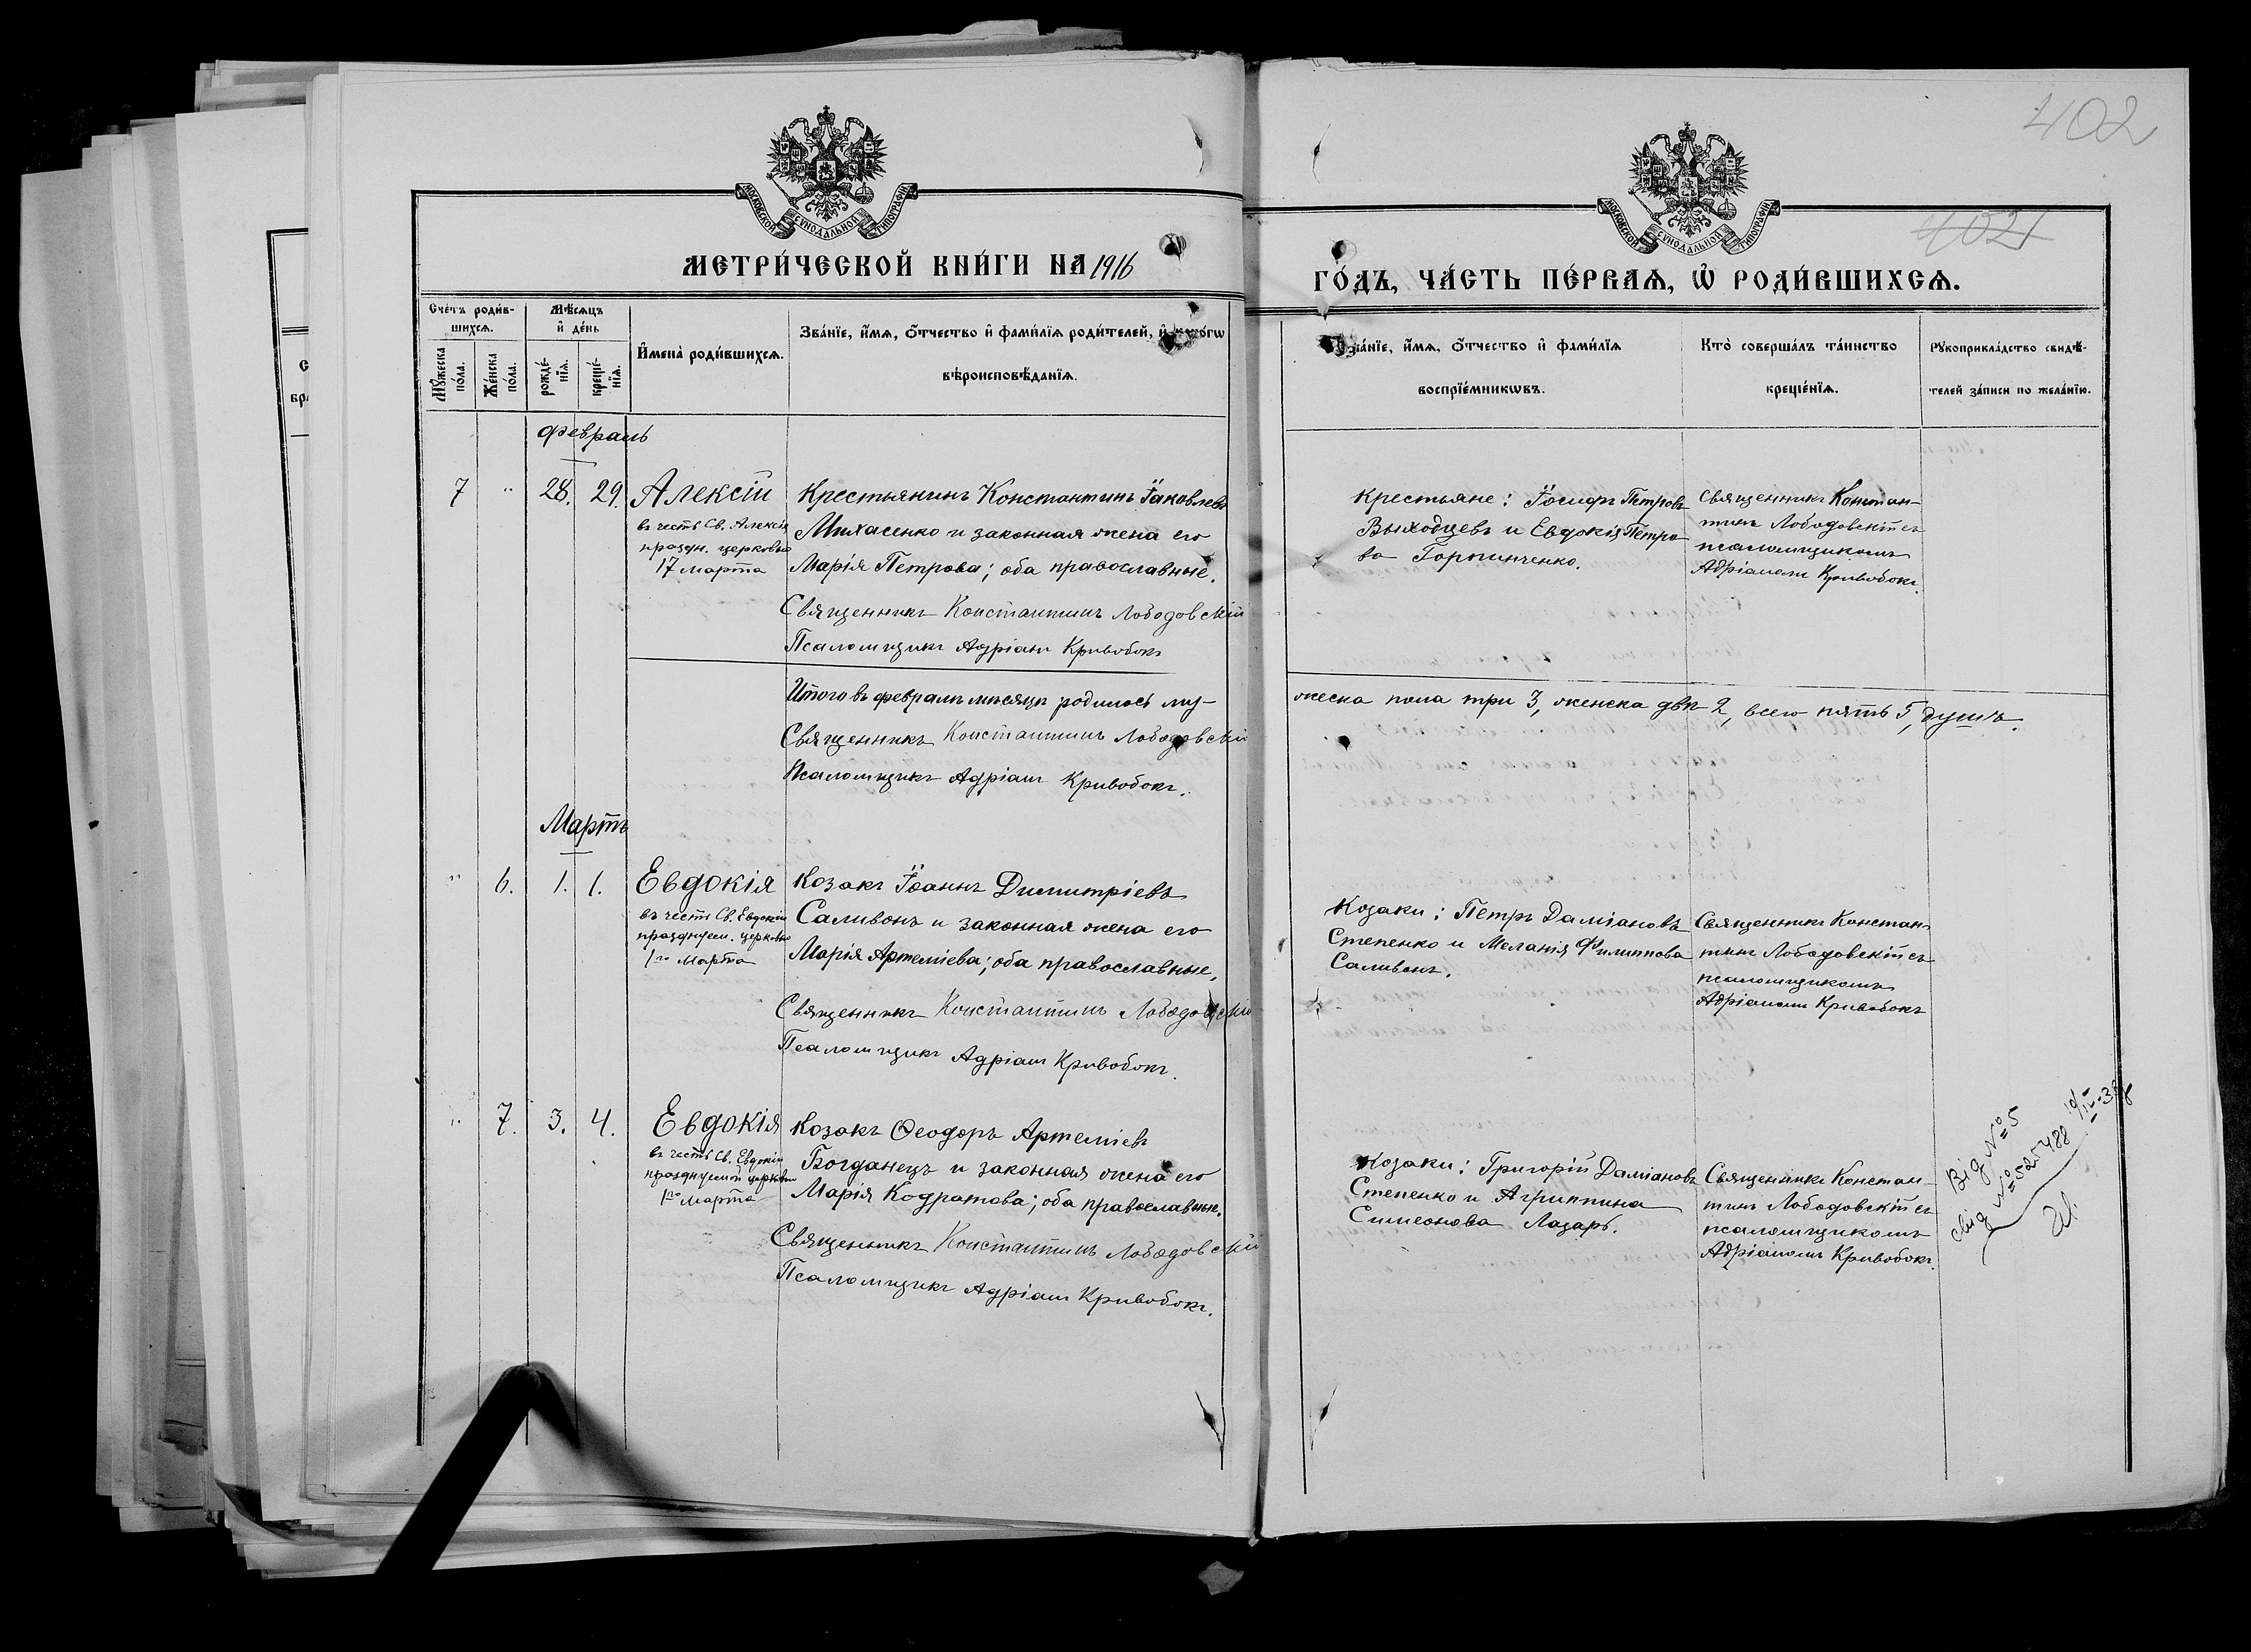 402
МОСКОВСКОЙ СѴНОДАЛЬНОЙ ТИПОГРАФІИ
МОСКОВСКОЙ СѴНОДАЛЬНОЙ ТИПОГРАФІИ
402
МЕТРИ́ЧЕСКОЙ КНИ́ГИ НА 1916
ГО́ДЪ, ЧА́СТЬ ПЕ́РВАѦ, Ѡ҆ РОДИ́ВШИХСѦ.
Сче́тъ роди́в-
шихсѧ.
Мꙋ́жеска
по́ла.
Же́нска
по́ла.
Мѣ́сѧцъ
и҆ де́нь
рожде́-
нїѧ.
креще́-
нїѧ.
И҆мена̀ роди́вшихсѧ.
Зва́нїе, и҆́мѧ, ѻ҆́тчество и҆ фами́лїѧ роди́телей, и҆ како́гѡ
вѣроисповѣ́данїѧ.
Зва́нїе, и҆́мѧ, ѻ҆́тчество и҆ фами́лїѧ
воспрїе́мникѡвъ.
Кто̀ соверша́лъ та́инство
креще́нїѧ.
Рꙋкоприкла́дство свидѣ́-
телей за́писи по жела́нїю.
Февраль
7 " 28. 29. Алексій
въ честь Св. Алексія
праздн. церковью
17 марта
Крестьянинъ Константинъ Іаковлевъ
Михасенко и законная жена его
Марія Петрова; оба православные.
Священникъ Константинъ Лободовскій
Псаломщикъ Адріанъ Кривобокъ
Крестьяне: Іосифъ Петровъ
Выходцевъ и Евдокія Петро
ва Горпинченко.
Священникъ Констан-
тинъ Лободовскій съ
псаломщикомъ
Адріаномъ Кривобокъ.
Итого въ февралѣ мѣсяцѣ родилось му-
жеска пола три 3, женска двѣ 2, всего пять 5, душъ.
Священникъ Константинъ Лободовскій
Псаломщикъ Адріанъ Кривобокъ.
Мартъ
" 6. 1. 1. Евдокія
въ честь Св. Евдокіи
празднуем. церковью
1го Марта
Козакъ Іоаннъ Димитріевъ
Саливонъ и законная жена его
Марія Артеміева; оба православные,
Священникъ Константинъ Лободовскій
Псаломщикъ Адріанъ Кривобокъ.
Козаки: Петръ Даміановъ
Степенко и Меланія Филиппова
Саливонъ.
Священникъ Констан
тинъ Лободовскій съ
псаломщикомъ
Адріаномъ Кривобокъ
" 7. 3. 4. Евдокія
въ честь Св. Евдокіи
празднуемой церковью
1го Марта
Козакъ Ѳеодоръ Артеміевъ
Богданецъ и законная жена его
Марія Кодратова; оба православные.
Священникъ Константинъ Лободовскій
Псаломщикъ Адріанъ Кривобокъ.
Козаки: Григорій Даміановъ
Степенко и Агриппина
Симеонова Лазарь.
Священникъ Констан-
тинъ Лободовскій съ
псаломщикомъ
Адріаномъ Кривобокъ.
Від №5
свід №525488